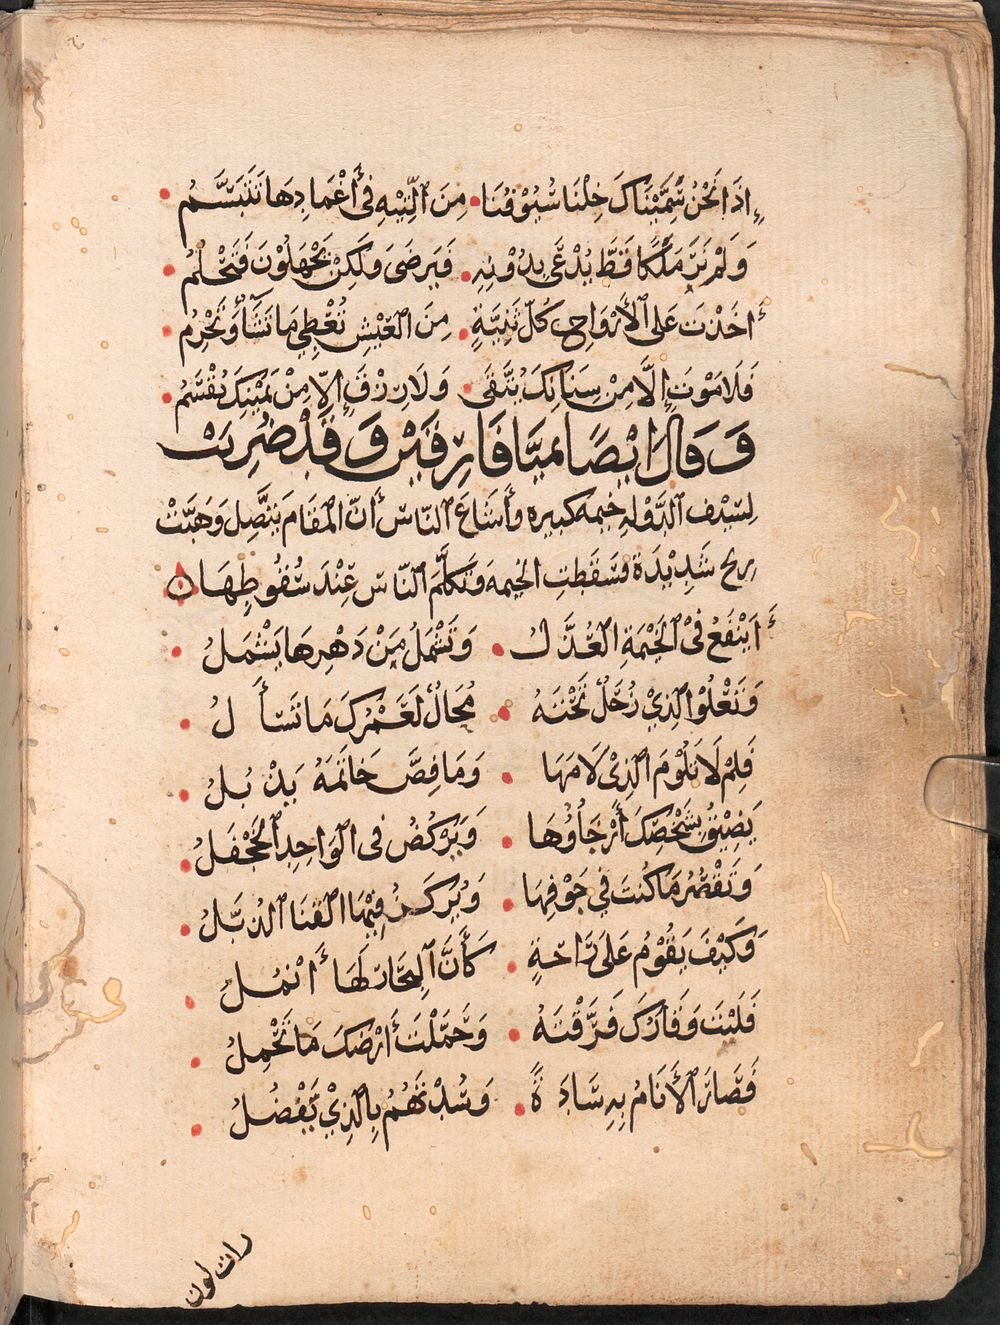 إِذَا نَحْنُ سَمَّيْنَاكَ خِلْنَا سُيُوْفُنَا • مِنَ التِّيْهِ فِي أَغْمَادِهَا تَتَبَسَّمُ •
وَلَمْ نَرَ مَلْكًا قَطُّ يُدْعَى بِدُوْنِهِ • فَيَرضَى وَلَكِنْ يَجْهَلُوْنَ فَتَحْلُمُ •
أَخَذْتَ عَلَى الأَرْوَاحِ كُلَّ ثَنِيَّةٍ • مِنَ العَيْشِ تُعْطِي مَا تَشَأُ وَتَحْرِمُ •
فَلَا مَوْتَ إِلَّا مِنْ سِنَانِكَ يُتَّقَى • وَلَا رِزْقَ إِلَّا مِنْ يَمِيْنِكَ يُقْسَمُ •
وَقَالَ ايْضًا بميَّافَارِقَيْن وَقَدْ ضُرِبَتْ
لِسَيْف الدَّوْلَهِ خيمه كبيره وأَشَاعَ النَّاسُ أَنَّ المَقَامَ يَتَّصِل وَهَبَّتْ
رِيح شَدِيْدَة فسَقَطَتِ الخيمه وَتَكَلَّمَ النَّاسُ عِنْدَ سُقُوطِهَا ن
أَيَنْفَعُ فِي الخَيْمَةِ العُذَّلُ • وَتَشْمَلُ مَنْ دَهْرهَا يَشْمَلُ •
وَتَعْلُوا الَّذِيْ زُحَلٌ تَحْتَهُ • مُحَالٌ لَعَمْرُكَ مَا تَسْأَلُ •
فَلِمْ لَا تَلُوْمَ الَّذِيْ لَامَهَا • وَمَا فِصُّ خَاتَمَهُ يَذْبُلُ •
يَضِيْقُ بِشَخْصِكَ أَرْجَاؤُهَا • وَيَرْكُضُ فِي الوَاحِدِ الجَحْفَلُ •
وَتَقْصُرُ مَا كُنْتَ فِي جَوْفِهَا • وَيُرْكَزُ فِيْهَا القَنَا الذُبَّلُ •
وَكَيْفَ يَقُوْمُ عَلَى رَاحَةٍ • كَأَنَّ البِحَارَ لَهَا أَنْمُلُ •
فَلَيْتَ وَقَارَكَ فَرَّقْتَهُ • وَحَمَّلْتَ أَرْضَكَ مَا تَحْمِلُ •
فَصَارَ الأَنَامُ بِهِ سَادَةً • وَسُدْتَهُمُ بِالَّذِيْ يَفْضُلُ •
رات لون